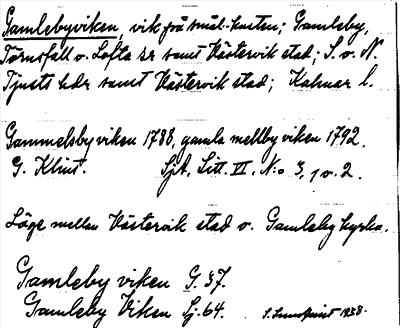 Gamlebyviken, vik på smål.-kusten; Gamleby,
Törnsfall o. Lofta sr samt Västervik stad; S. o. N.
Tjusts hdr samt Västervik stad; Kalmar l.
Gammelsby viken 1788, gamla mellby viken 1792.
G. Klint. Sjk. Litt. VI. N:o 3, 1 o. 2.
Läge mellan Västervik stad o. Gamleby kyrka.
Gamleby viken G. 37.
Gamleby Viken Sj. 64. 1938.